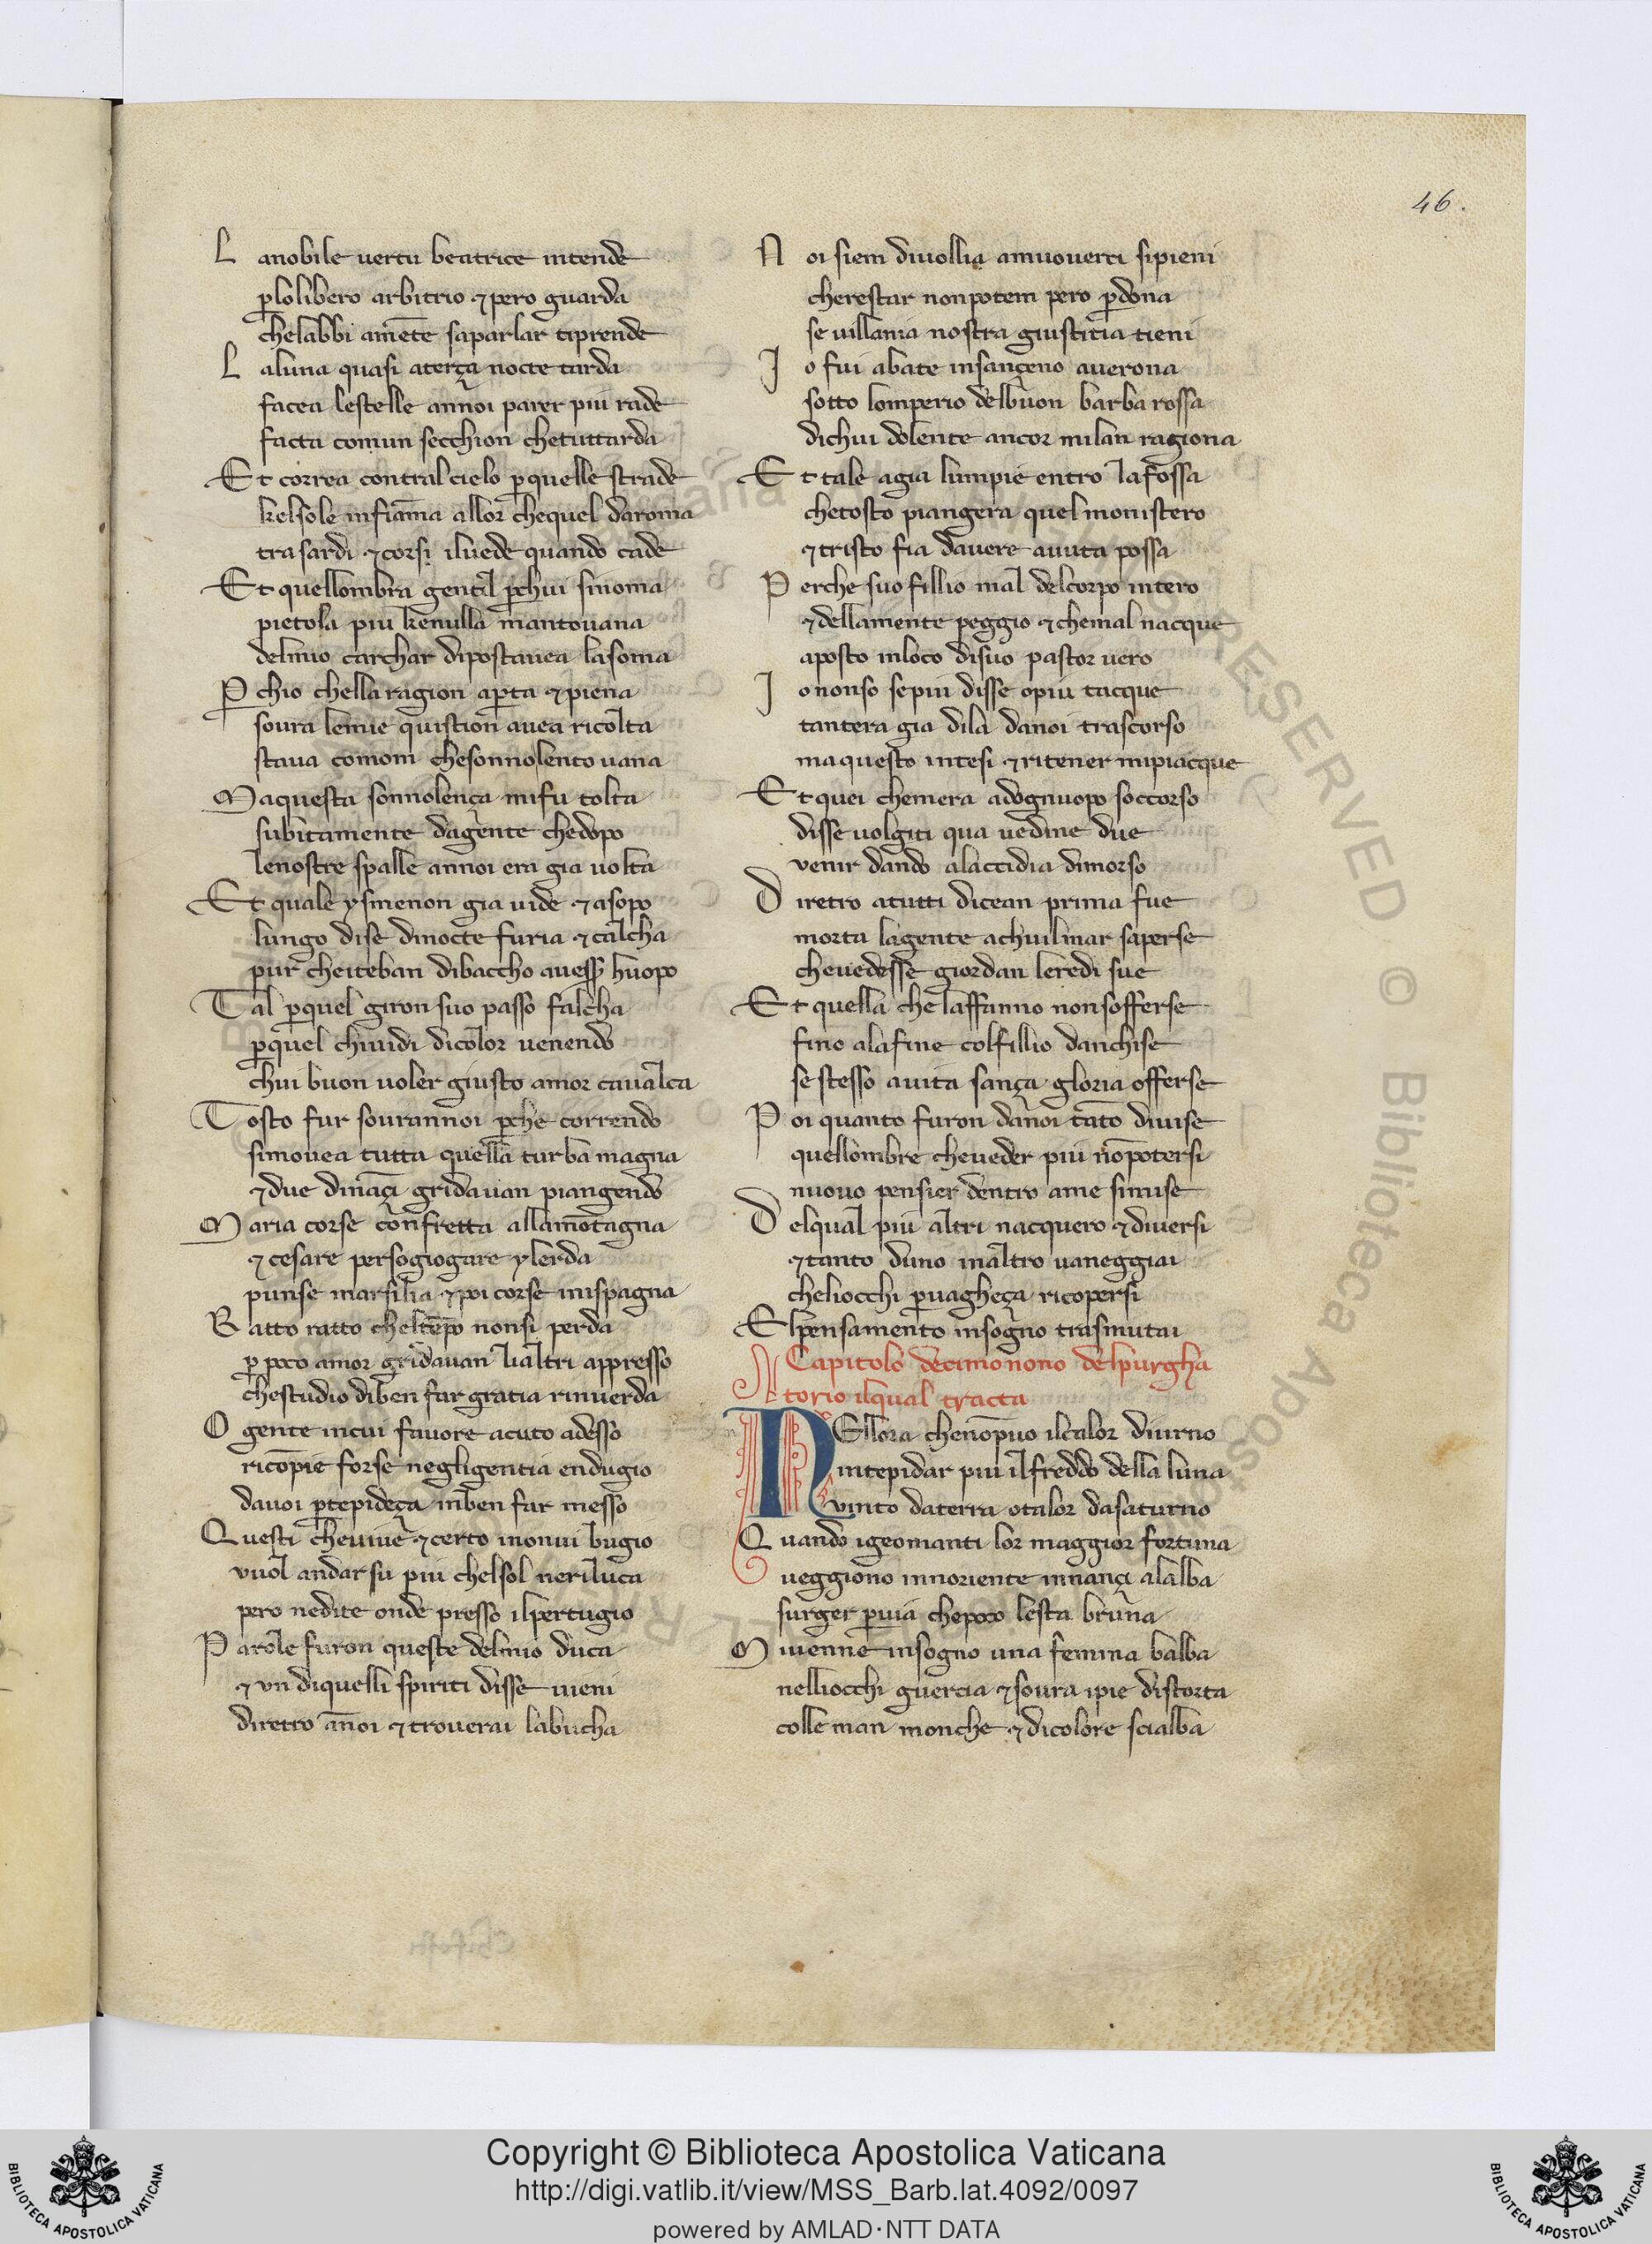 46.
L anobile uertu beatrice intende
p̱lolibero arbitrio ⁊ pero guarda
chelabbi am̄ete saparlar tiprende
L aluna quasi aterça nocte tarda
facea lestelle annoi parer piu rade
facta comun secchion chetuttarda
Et correa contral cielo p̱quelle strade
kelsole infiāma allor chequel daroma
tra sardi ⁊ corsi iluede quando cade
Et quellombra gentil p̱chui sinoma
pietola piu kenulla mantouana
delmio carchar dipostauea lasoma
P̱ chio chella ragion ap̱ta ⁊ piena
soura lemie quistion auea ricolta
staua comom chesonnolento uana
Maquesta sonnolença mifu tolta
subitamente dagente chedopo
lenostre spalle annoi era gia uolta
Et quale ysmenon gia uide ⁊ asopo
lungo dise dinocte furia ⁊ calcha
pur cheiteban dibaccho auess̱ huopo
Tal p̱quel giron suo passo falcha
p̱quel chiuidi dicolor uenendo
chui buon uoler giusto amor caualca
Tosto fur sourannoi p̱che correndo
simouea tutta quella turba magna
⁊ due dināçi gridauan piangendo
Maria corse confretta allamōtagna
⁊ cesare persogiogare ylerda
punse marsilia ⁊ poi corse inispagna
Ratto ratto cheltēpo nonsi perda
p̱ poco amor gridauan lialtri appresso
chestudio diben far gratia rinuerda
O gente incui fauore acuto adesso
ricōpie forse negligentia endugio
dauoi p̱tepideça inben far messo
Questi cheuiue ⁊ certo inonui bugio
vuol andar su piu chelsol neriluca
pero nedite onde presso ilpertugio
Parole furon queste delmio duca
⁊ vn diquelli spiriti disse uieni
diretro ānoi ⁊ trouerai labucha
N oi siem diuollia amuouerci sipieni
cherestar nonpotem pero p̱dona
se uillania nostra giustitia tieni
I o fui abate insançeno auerona
sotto lomperio delbuon barba rossa
dichui dolente ancor milan ragiona
Et tale agia lumpie entro lafossa
chetosto piangera quel monistero
⁊ tristo fia dauere auuta possa
Perche suo fillio mal delcorpo intero
⁊ dellamente peggio ⁊ chemal nacque
aposto inloco disuo pastor uero
I o nonso sepiu disse opiu tacque
tantera gia dila danoi trascorso
maquesto intesi ⁊ ritener mipiacque
Et quei chemera adognuopo soccorso
disse uolgiti qua uedine due
venir dando alaccidia dimorso
Diretro atutti dicean prima fue
morta lagente achuilmar saperse
cheuedesse giordan leredi sue
Et quella chelaffanno nonsofferse
fino alafine colfillio danchise
sestesso auita sança gloria offerse
Poi quanto furon dānoi tāto diuise
quellombre cheueder piu nōpotersi
nuouo pensier dentro ame simise
Delqual piu altri nacquero ⁊ diuersi
⁊ tanto duno inaltro uaneggiai
cheliocchi p̱uagheça ricopersi
Elpensamento insogno trasmutai
Capitolo decimonono delpurgha
torio ilqual tracta
NEllora chenōpuo ilcalor diurno
intepidar piu ilfreddo della luna
vinto daterra otalor dasaturno
Quando igeomanti lor maggior fortuna
ueggiono innoriente innançi alalba
surger p̱uia chepoco lesta bruna
Miuenne insogno una femina balba
nelliocchi guercia ⁊ soura ipie distorta
colle man monche ⁊ dicolore scialba
Copyright © Biblioteca Apostolica Vaticana
http://digi.vatlib.it/view/MSS_Barb.lat.4092/0097
powered by AMLAD·NTT DATA